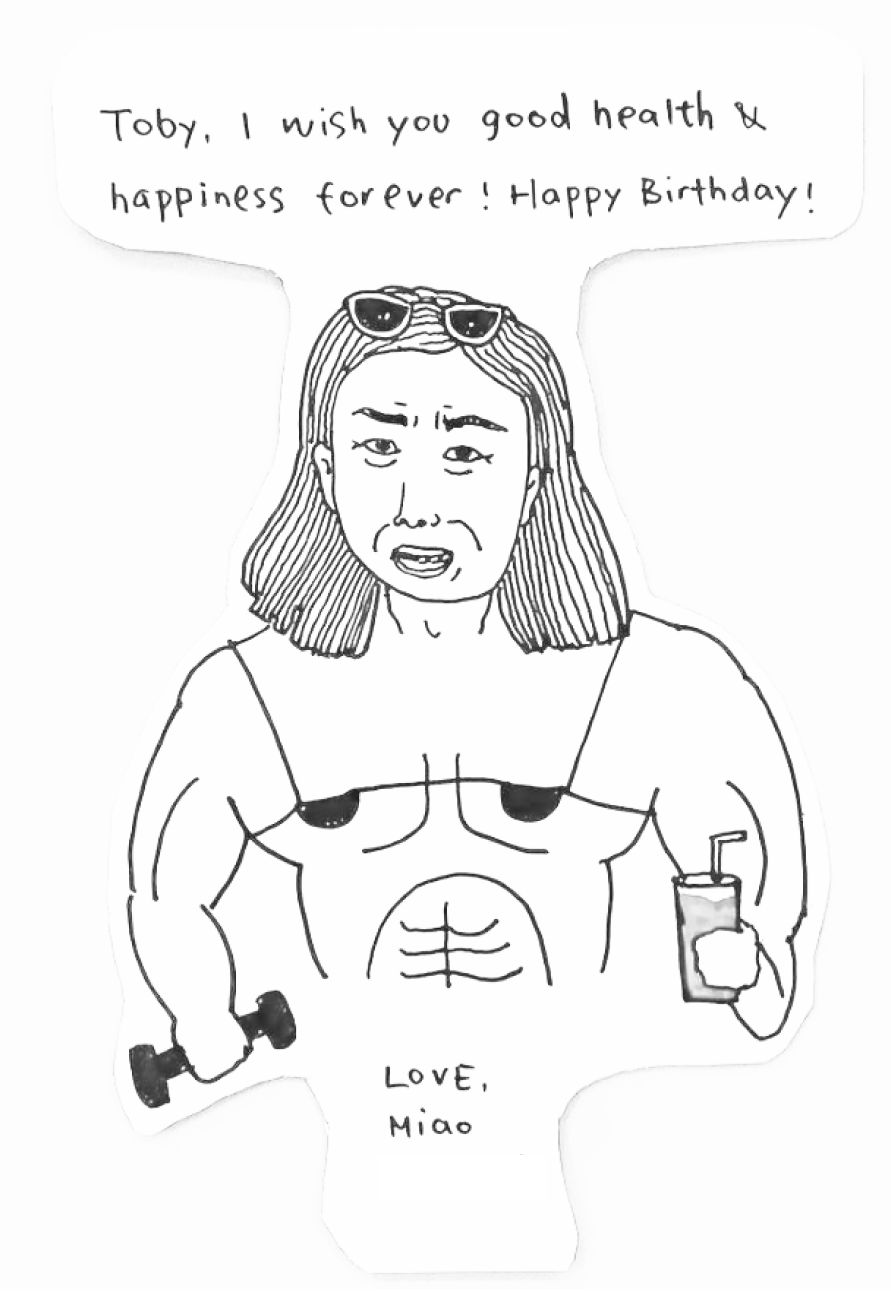 Toby, I wish you good health &
happiness forever! Happy Birthday!
LOVE,
Miao